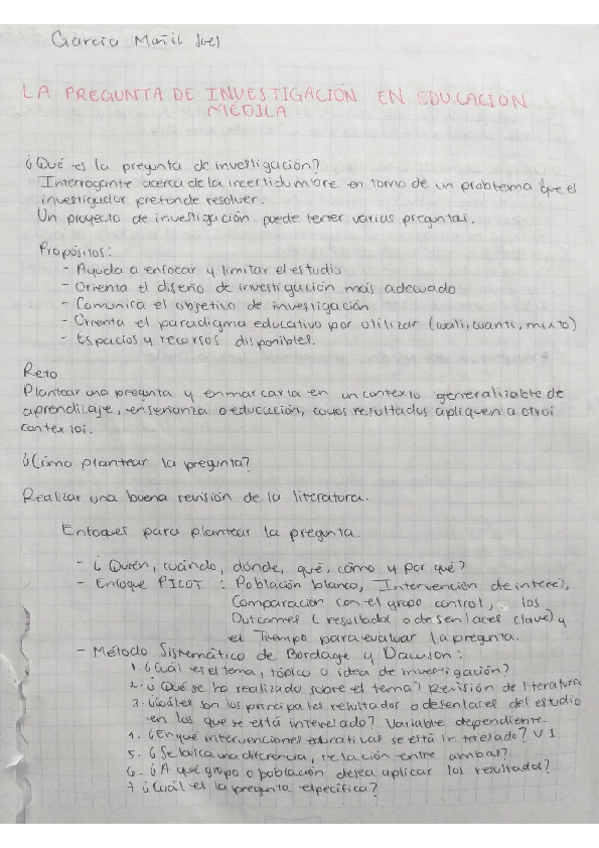 García Muñil Joel
LA PREGUNTA DE INVESTIGACIÓN EN EDUCACIÓN
MÉDICA
¿Qué es la pregunta de investigación?
Interrogante acerca de la incertidumbre en torno de un problema que el
investigador pretende resolver.
Un proyecto de investigación puede tener varias preguntas.
Propósitos:
- Ayuda a enfocar y limitar el estudio
- Orienta el diseño de investigación más adecuado
- Comunica el objetivo de investigación
- Orienta el paradigma educativo por utilizar (cuali, cuanti, mixto)
- Espacios y recursos disponibles.
Reto
Plantear una pregunta y enmarcarla en un contexto generalizable de
aprendizaje, enseñanza o educación, cuyos resultados apliquen a otros
contextos.
¿Cómo plantear la pregunta?
Realizar una buena revisión de la literatura.
Enfoques para plantear la pregunta.
- ¿Quién, cuándo, dónde, qué, cómo y por qué?
- Enfoque PICOT : Población blanco, Intervención de interés,
Comparación con el grupo control, los
Outcomes (resultados o desenlaces clave) y
el Tiempo para evaluar la pregunta.
- Método Sistemático de Bordage y Dawson:
1. ¿Cuál es el tema, tópico o idea de investigación?
2. ¿Qué se ha realizado sobre el tema? Revisión de literatura
3. ¿Cuáles son los principales resultados o desenlaces del estudio
en los que se está interesado? Variable dependiente.
4. ¿En qué intervenciones educativas se está interesado? VI
5. ¿Se busca una diferencia, relación entre ambas?
6. ¿A qué grupo o población desea aplicar los resultados?
7 ¿Cuál es la pregunta específica?